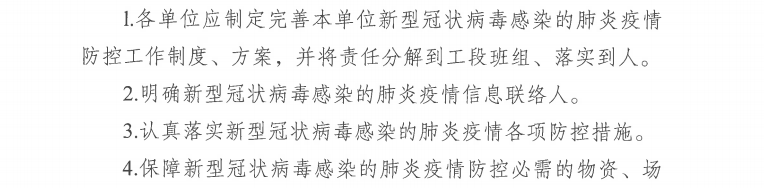 1.各单位应制定完善本单位新型冠状病毒感染的肺炎疫情
防控工作制度、方案，并将责任分解到工段班组、落实到人。
2.明确新型冠状病毒感染的肺炎疫情信息联络人。
3.认真落实新型冠状病毒感染的肺炎疫情各项防控措施。
4.保障新型冠状病毒感染的肺炎疫情防控必需的物资、场